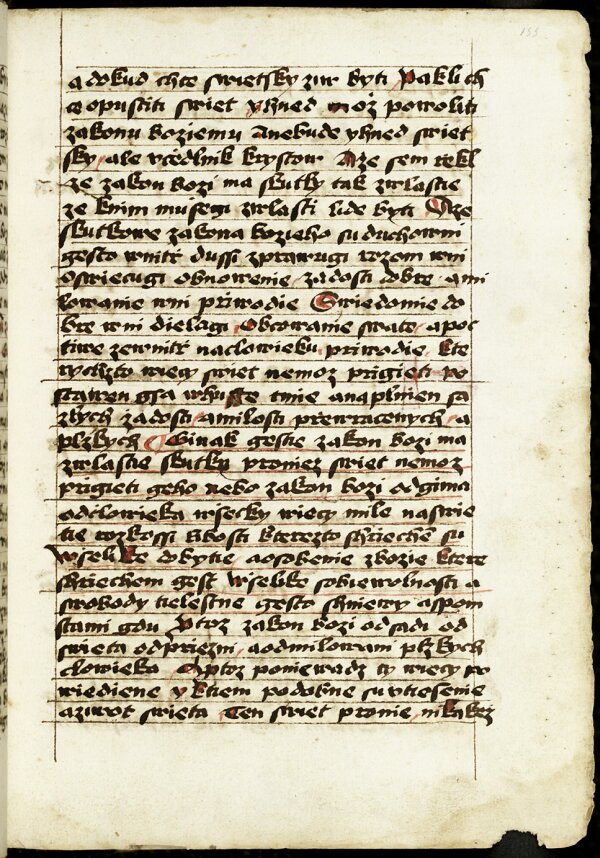 155
a dokud chce swietsky zuw byti Pakli ch
ce opustiti swiet yhned moz powoliti
zakonu boziemu Anebude yhned swiet
sky ale vrzedlnik krystow Aze sem rzekl
ze zakon bozi ma skutky tak zwlastie
ze knim musegi zwlasti lide byti Aze
skutkowe zakona bozieho su duchowni
gesto wnitrz dussi zprawugi rozom wni
oswiecugi obnowenie zadosti dobre a mi
lowanie wni priwodie Swiedomie do
bre wni dielagi Obcowanie swate a poc
tiwe zewnitrz naclowieku priwodie kte
rychzto wiecy swiet nemoz prigieti po
stawen gsa whuste tmie anaplnien sa
zlych zadosti amilosti prewracenych a
plzkych Ginak gestie zakon bozi ma
zwlastie skutky proniez swiet nemoz
prigieti geho nebo zakon bozi odgima
odclowieka wsecky wiecy mile naswie
tie rozkossi kterezto shrziechem su
Wselike dobytie a osobenie zbozie ktere
shrziechem gest Wselike sobiewolnosti a
swobody tielestne gesto shniewy a spom
stami gdu Ptoz zakon bozi odsadi od
swieta odprziezni aodmilowani plzkych
clowieka Aptoz poniewadz ty wiecy po
wiediene y ktiem podobne su vtiesenie
aziwot swieta Ten swiet pronie nikakez